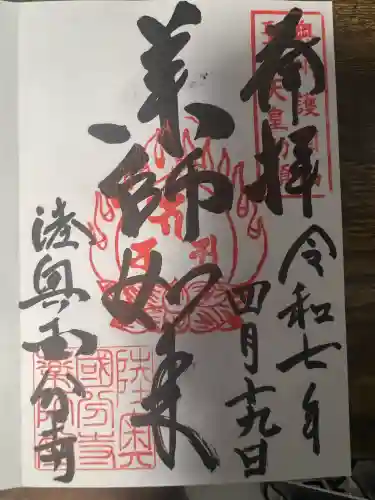 奉拝
令和七年
四月十九日
薬師如来
陸奥国分寺
陸奥
國分寺
薬師